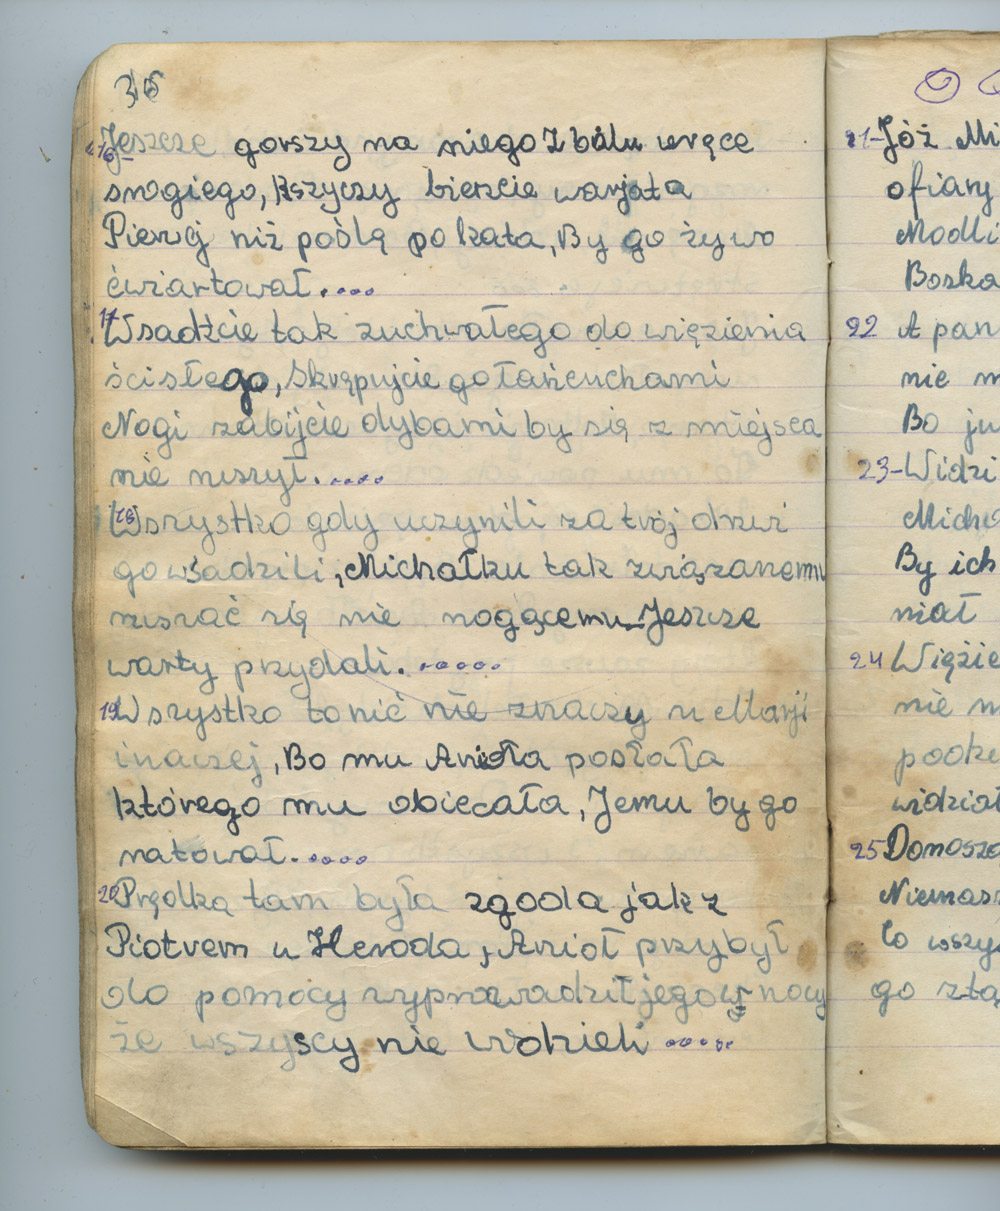 36
16 Jeszcze gorszy na niego z bólu wręce
srogiego, Krzyczy bierzcie warjata
Pierwej niż poślą po kata, By go żywo
ćwiartował....
17 Wsadźcie tak zuchwałego do więzienia
ścisłego, Skrępujcie go łańcuchami
Nogi zabijcie dybami by się z miejsca
nie ruszył.....
18 Wszystko gdy uczynili za trój drzwi
go wsadzili, Michałku tak związanemu
ruszać się nie mogącemu Jeszcze
warty przydali. .....
19 Wszystko to nić nie znaczy u Marji
inaczej, Bo mu Anioła posłała
którego mu obiecała, Jemu by go
ratował.....
20 Prędka tam była zgoda jak z
Piotrem u Heroda, Anioł przybył
do pomocy wyprowadził jego w nocy
że wszyscy nie widzieli .....
21- Jóż Mi
ofiary
Modli
Boska
22 A pan
nie m
Bo ju
23- Widzi
Micha
By ich
miał
24 Więzie
nie m
widział
25 Donosza
Niemasz
Co wszy
go ztą